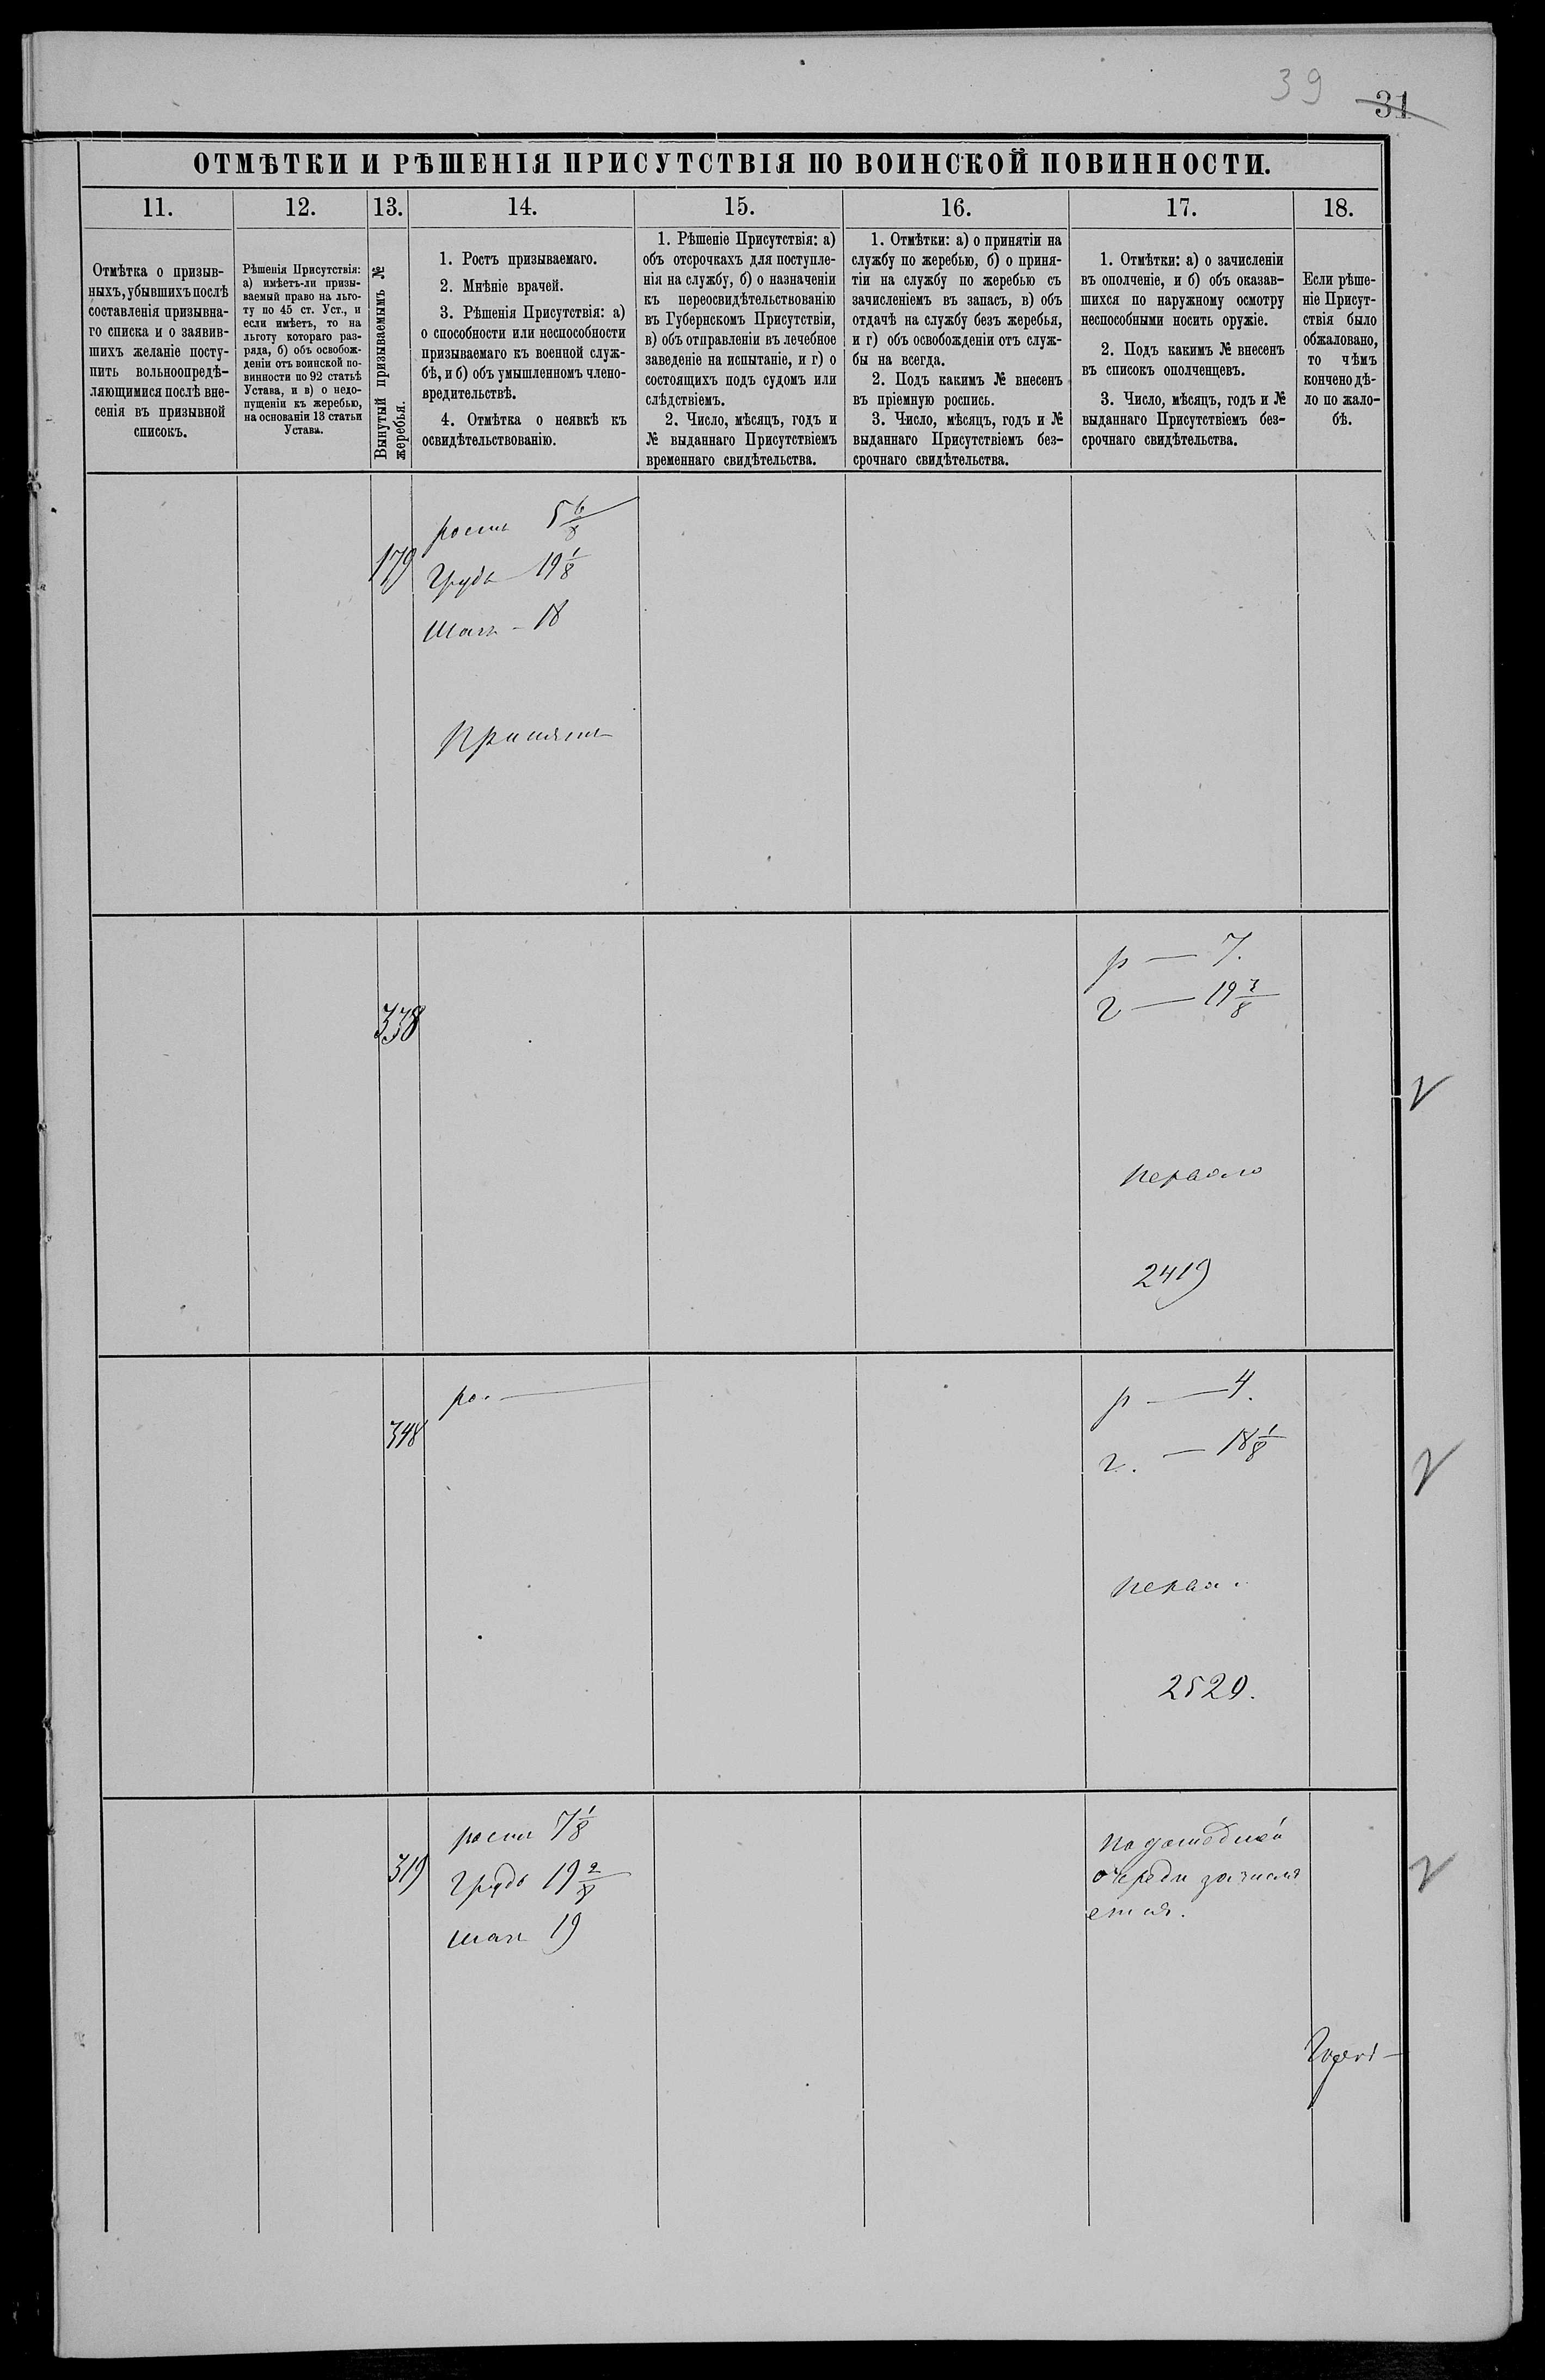 39
31
ОТМѢТКИ И РѢШЕНІЯ ПРИСУТСТВІЯ ПО ВОИНСКОЙ ПОВИННОСТИ.
11.
12.
13.
14.
15.
16.
17.
18.
Отмѣтка о призыв-
ныхъ, убывшихъ послѣ
составленія призывна-
го списка и о заявив-
шихъ желаніе посту-
пить вольноопредѣ-
ляющимися послѣ вне-
сенія въ призывной
списокъ.
Рѣшенія Присутствія:
а) имѣетъ-ли призы-
ваемый право на льго-
ту по 45 ст. Уст., и
если имѣетъ, то на
льготу котораго раз-
ряда, б) объ освобож-
деніи отъ воинской по-
винности по 92 статьѣ
Устава, и в) о недо-
пущеніи къ жеребью,
на основаніи 13 статьи
Устава.
Вынутый призываемымъ №
жеребья.
1. Ростъ призываемаго.
2. Мнѣніе врачей.
3. Рѣшенія Присутствія: а)
о способности или неспособности
призываемаго къ военной служ-
бѣ, и б) объ умышленномъ члено-
вредительствѣ.
4. Отмѣтка о неявкѣ къ
освидѣтельствованію.
1. Рѣшеніе Присутствія: а)
объ отсрочкахъ для поступле-
нія на службу, б) о назначеніи
къ переосвидѣтельствованію
въ Губернскомъ Присутствіи,
в) объ отправленіи въ лечебное
заведеніе на испытаніе, и г) о
состоящихъ подъ судомъ или
слѣдствіемъ.
2. Число, мѣсяцъ, годъ и
№ выданнаго Присутствіемъ
временнаго свидѣтельства.
1. Отмѣтки: а) о принятіи на
службу по жеребью, б) о приня-
тіи на службу по жеребью съ
зачисленіемъ въ запасъ, в) объ
отдачѣ на службу безъ жеребья,
и г) объ освобожденіи отъ служ-
бы на всегда.
2. Подъ какимъ № внесенъ
въ пріемную роспись.
3. Число, мѣсяцъ, годъ и №
выданнаго Присутствіемъ без-
срочнаго свидѣтельства.
1. Отмѣтки: а) о зачисленіи
въ ополченіе, и б) объ оказав-
шихся по наружному осмотру
неспособными носить оружіе.
2. Подъ какимъ № внесенъ
въ списокъ ополченцевъ.
3. Число, мѣсяцъ, годъ и №
выданнаго Присутствіемъ без-
срочнаго свидѣтельства.
Если рѣше-
ніе Присут-
ствія было
обжаловано,
то чѣмъ
кончено дѣ-
ло по жало-
бѣ.
179
ростъ 5 6/8
грудь 19 1/8
шаг 18
Принятъ
338
р — 7.
г — 19 3/8
2419
348
ро.
р — 4.
г. — 18 1/8
2520.
319
ростъ 7 1/8
грудь 19 2/8
шаг 19
очереди зачисля
ется.